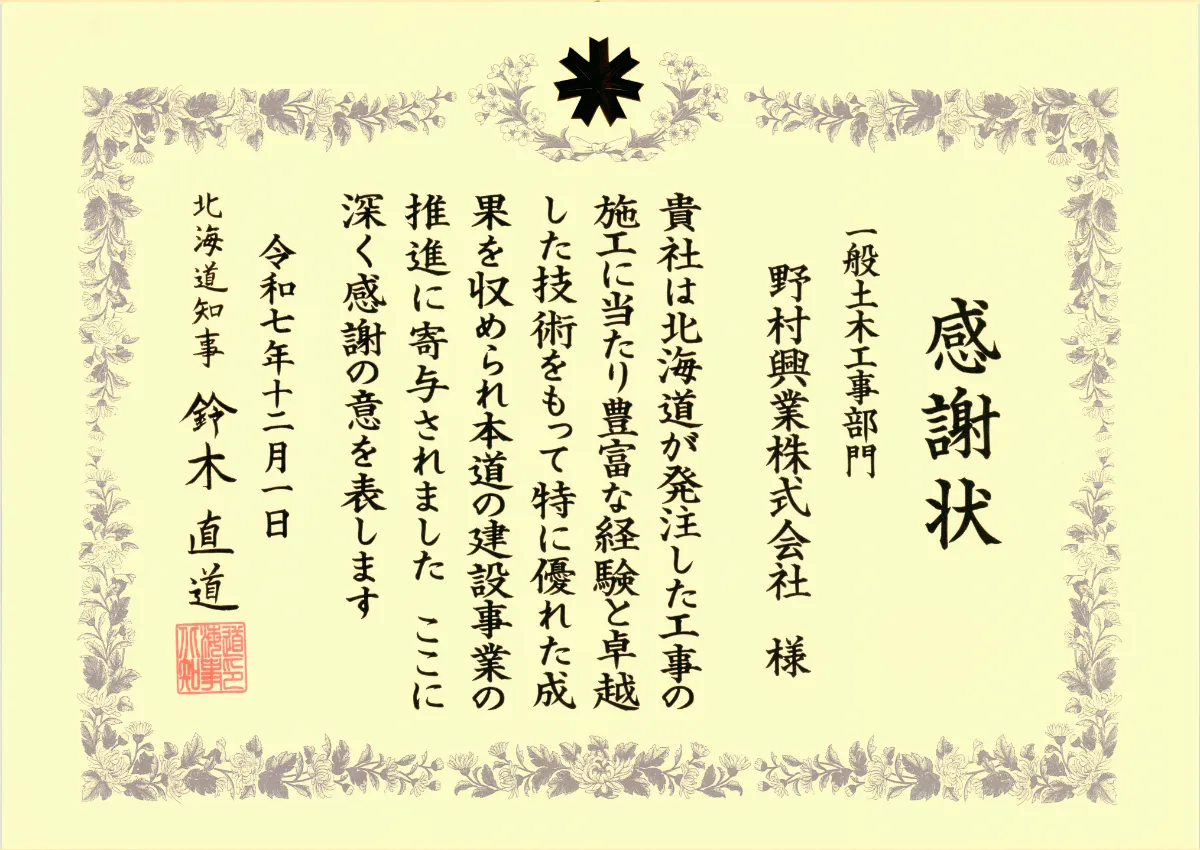 感謝状
一般土木工事部門
野村興業株式会社 様
貴社は北海道が発注した工事の
施工に当たり豊富な経験と卓越
した技術をもって特に優れた成
果を収められ本道の建設事業の
推進に寄与されました ここに
深く感謝の意を表します
令和七年十二月一日
北海道知事 鈴木直道